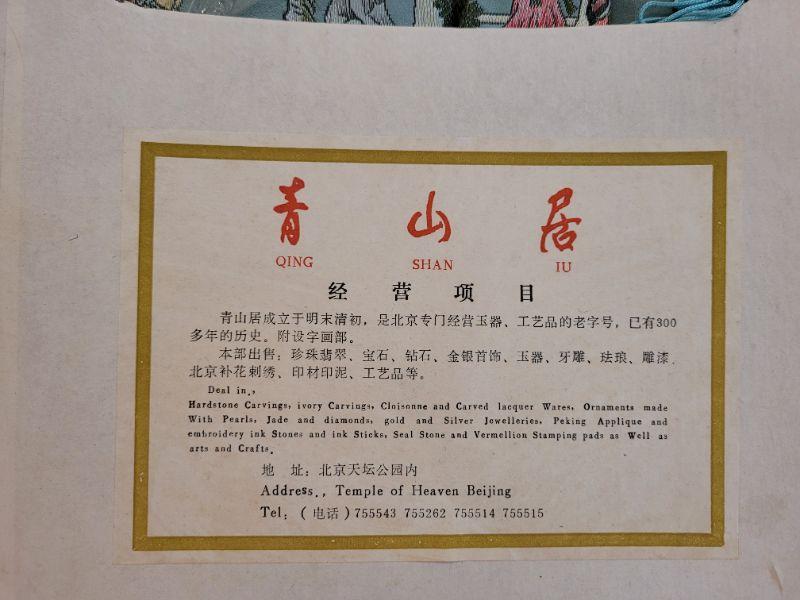 青山居
QING SHAN IU
经营项目
青山居成立于明末清初，是北京专门经营玉器、工艺品的老字号，已有300
多年的历史。附设字画部。
本部出售：珍珠翡翠、宝石、钻石、金银首饰、玉器、牙雕、珐琅、雕漆、
北京补花刺绣、印材印泥、工艺品等。
Deal in.,
Hardstone Carvings, ivory Carvings, Cloisonne and Carved lacquer Wares, Ornaments made
With Pearls, Jade and diamonds, gold and Silver Jewelleries, Peking Applique and
embroidery ink Stones and ink Sticks, Seal Stone and Vermellion Stamping pads as Well as
arts and Crafts.
地 址：北京天坛公园内
Address., Temple of Heaven Beijing
Tel: (电话) 755543 755262 755514 755515